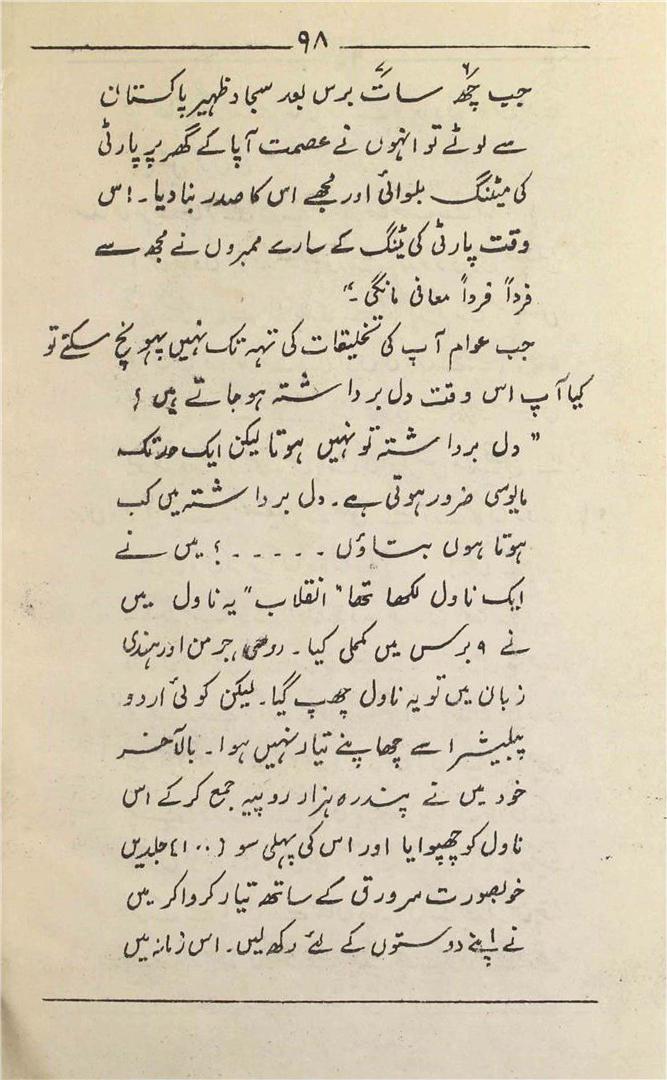 ۹۸
جب چھ سات برس بعد سجاد ظہیر پاکستان
سے لوٹے تو انہوں نے عصمت آپا کے گھر پر پارٹی
کی میٹنگ بلوائی اور مجھے اس کا صدر بنا دیا۔ اس
وقت پارٹی کی ٹینگ کے سارے ممبروں نے مجھ سے
فرداً فرداً معافی مانگی۔"
جب عوام آپ کی تخلیقات کی تہہ تک نہیں پہونچ سکتے تو
کیا آپ اس وقت دل برداشتہ ہو جاتے ہیں؟
"دل برداشتہ تو نہیں ہوتا لیکن ایک حد تک
مایوسی ضرور ہوتی ہے۔ دل برداشتہ میں کب
ہوتا ہوں بتاؤں ۔۔۔۔۔؟ میں نے
ایک ناول لکھا تھا "انقلاب" یہ ناول میں
نے ۹ برس میں مکمل کیا۔ روسی، جرمن اور ہندی
زبان میں تو یہ ناول چھپ گیا۔ لیکن کوئی اردو
پبلیشر اسے چھاپنے تیار نہیں ہوا۔ بالآخر
خود میں نے پندرہ ہزار روپیہ جمع کر کے اس
ناول کو چھپوایا اور اس کی پہلی سو (۱۰۰) جلدیں
خوبصورت سرورق کے ساتھ تیار کروا کر میں
نے اپنے دوستوں کے لئے رکھ لیں۔ اس زمانہ میں